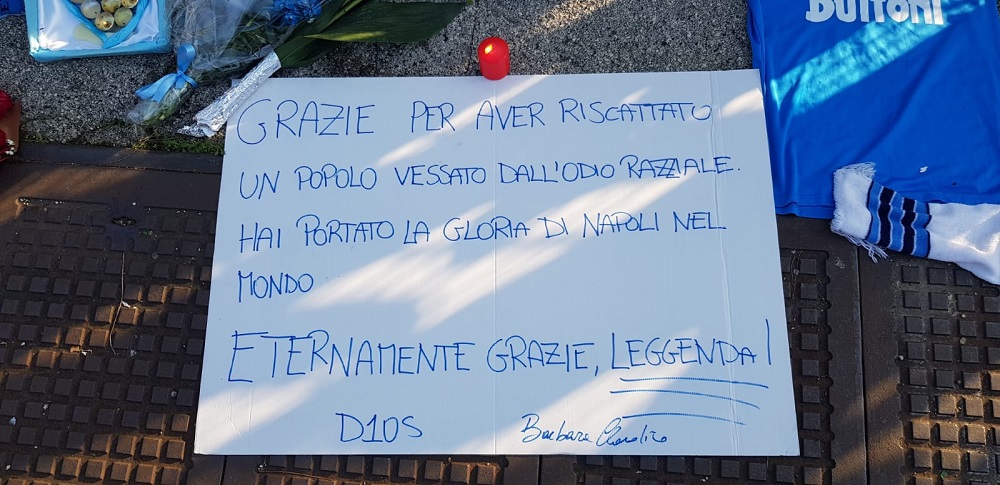 Buitoni
GRAZIE PER AVER RISCATTATO
UN POPOLO VESSATO DALL'ODIO RAZZIALE.
HAI PORTATO LA GLORIA DI NAPOLI NEL
MONDO
ETERNAMENTE GRAZIE, LEGGENDA!
D10S
Barbara